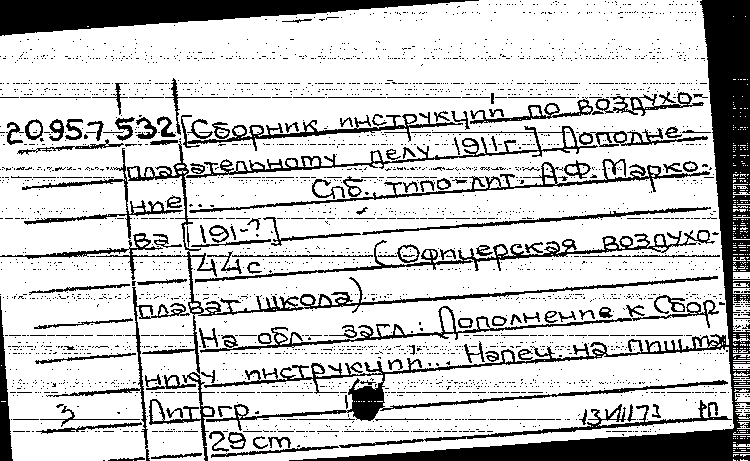 20.95.7.532 [Сборник инструкций по воздухо-
плавательному делу. 1911 г.] Дополне-
ние... Спб., типо-лит. А.Ф. Марко-
ва [191-?]
44 с. (Офицерская воздухо-
плават. школа).
На обл. загл.: Дополнение к Сбор-
нику инструкций... Напеч. на пиш.ма
3 Литогр.
29 cm. 13 VII 73